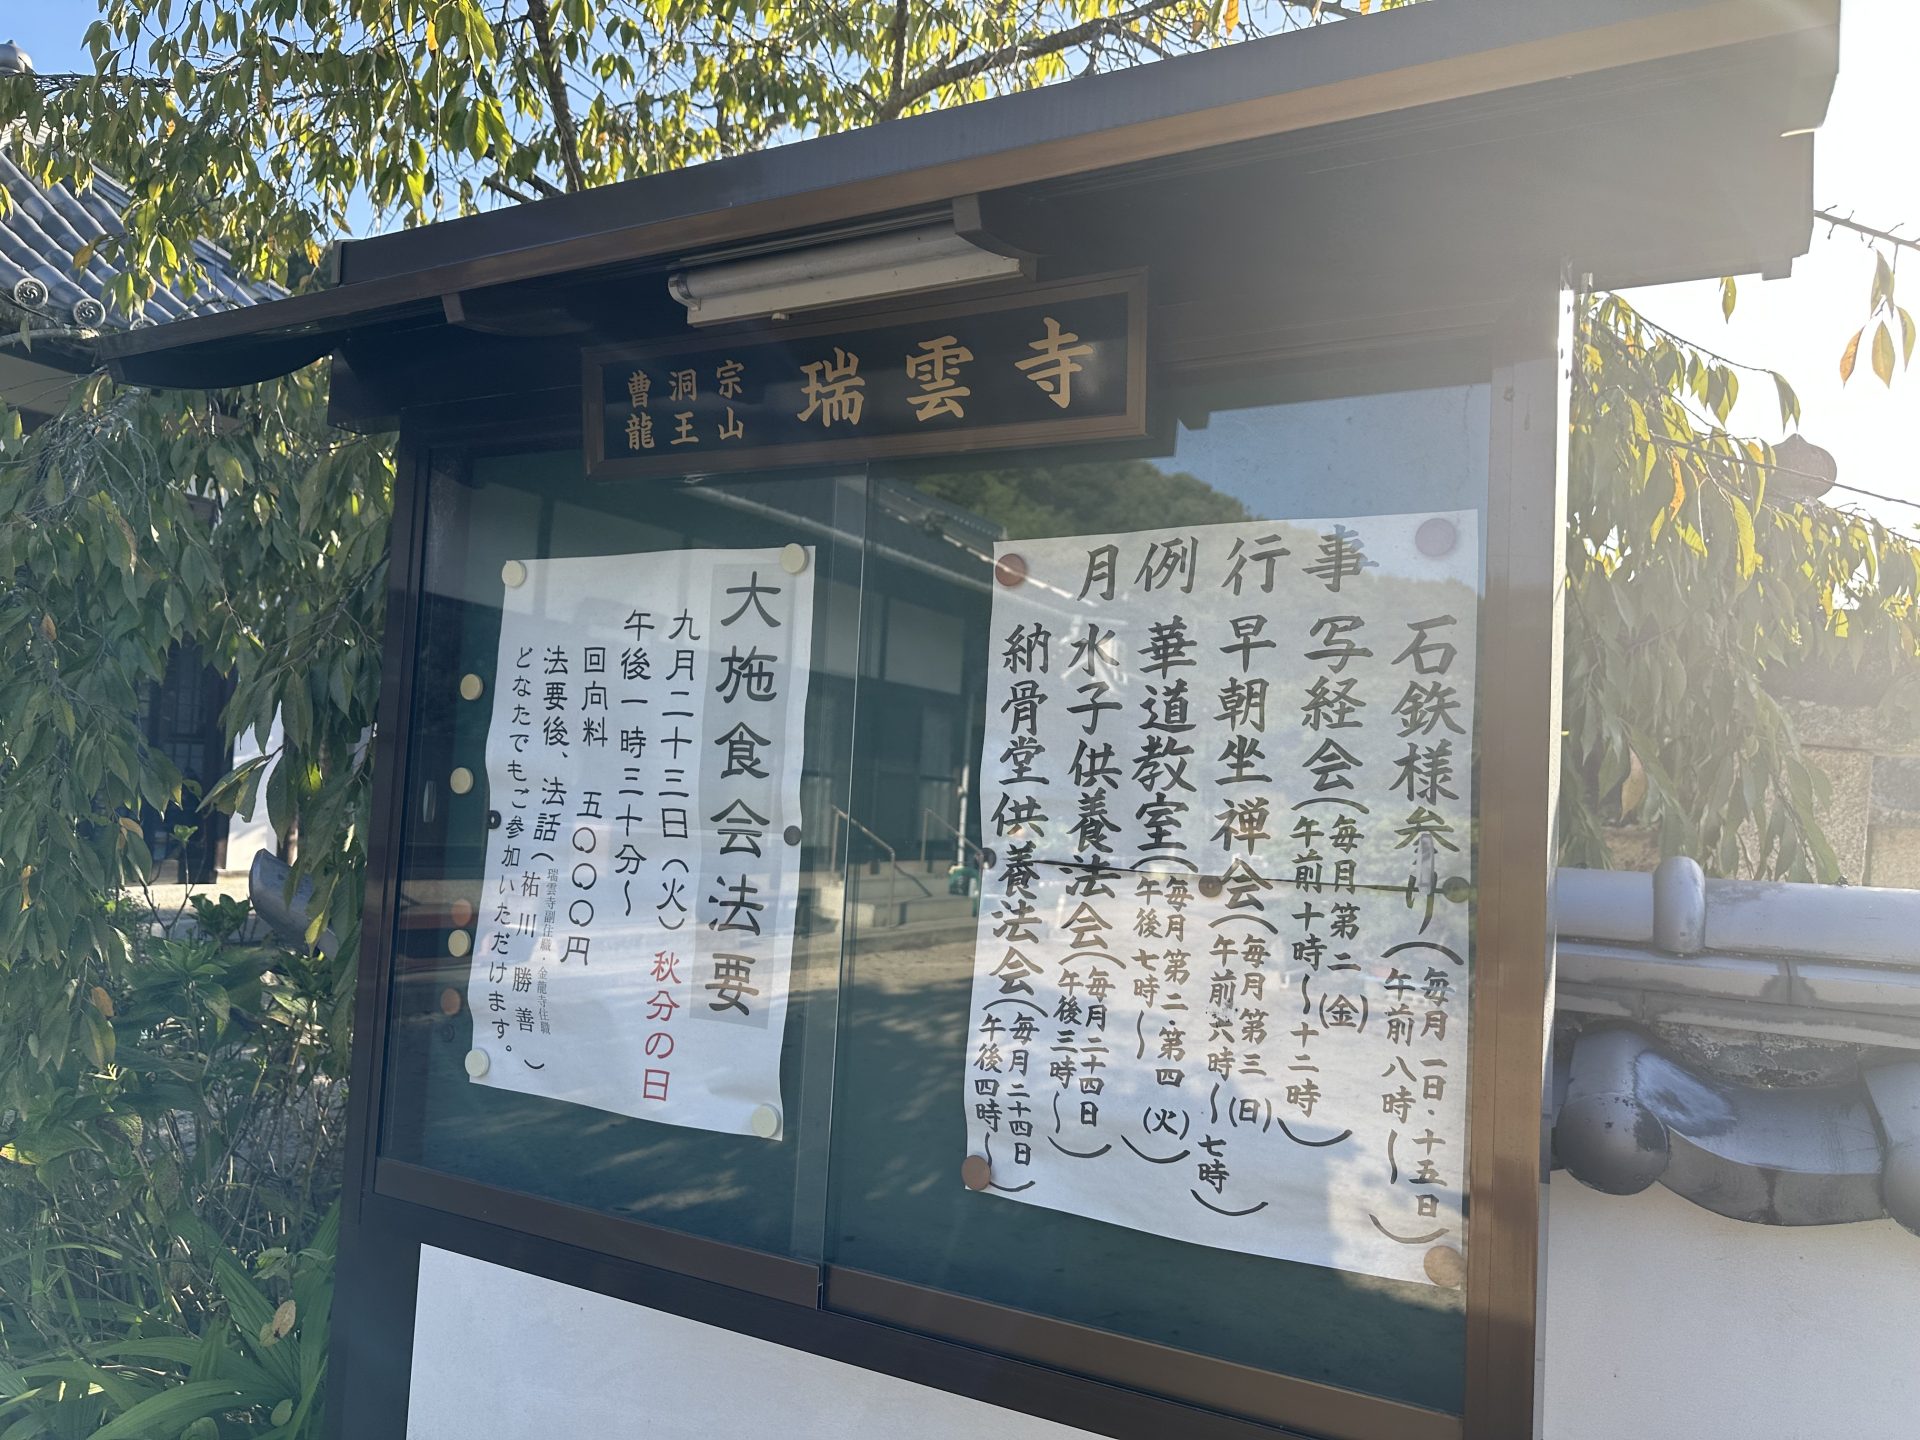 曹洞宗
龍王山
瑞雲寺
月例行事
石鉄様参り(毎月一日・十五日
午前八時〜)
写経会(毎月第二(金)
午前十時〜十二時)
早朝坐禅会(毎月第三(日)
午前六時〜七時)
華道教室(毎月第二・第四(火)
午後七時〜)
水子供養法会(毎月二十四日
午後三時〜)
納骨堂供養法会(毎月二十四日
午後四時〜)
大施食会法要
九月二十三日(火)秋分の日
午後一時三十分〜
回向料 五〇〇〇円
法要後、法話(瑞雲寺副住職・金龍寺住職 祐川 勝善)
どなたでもご参加いただけます。